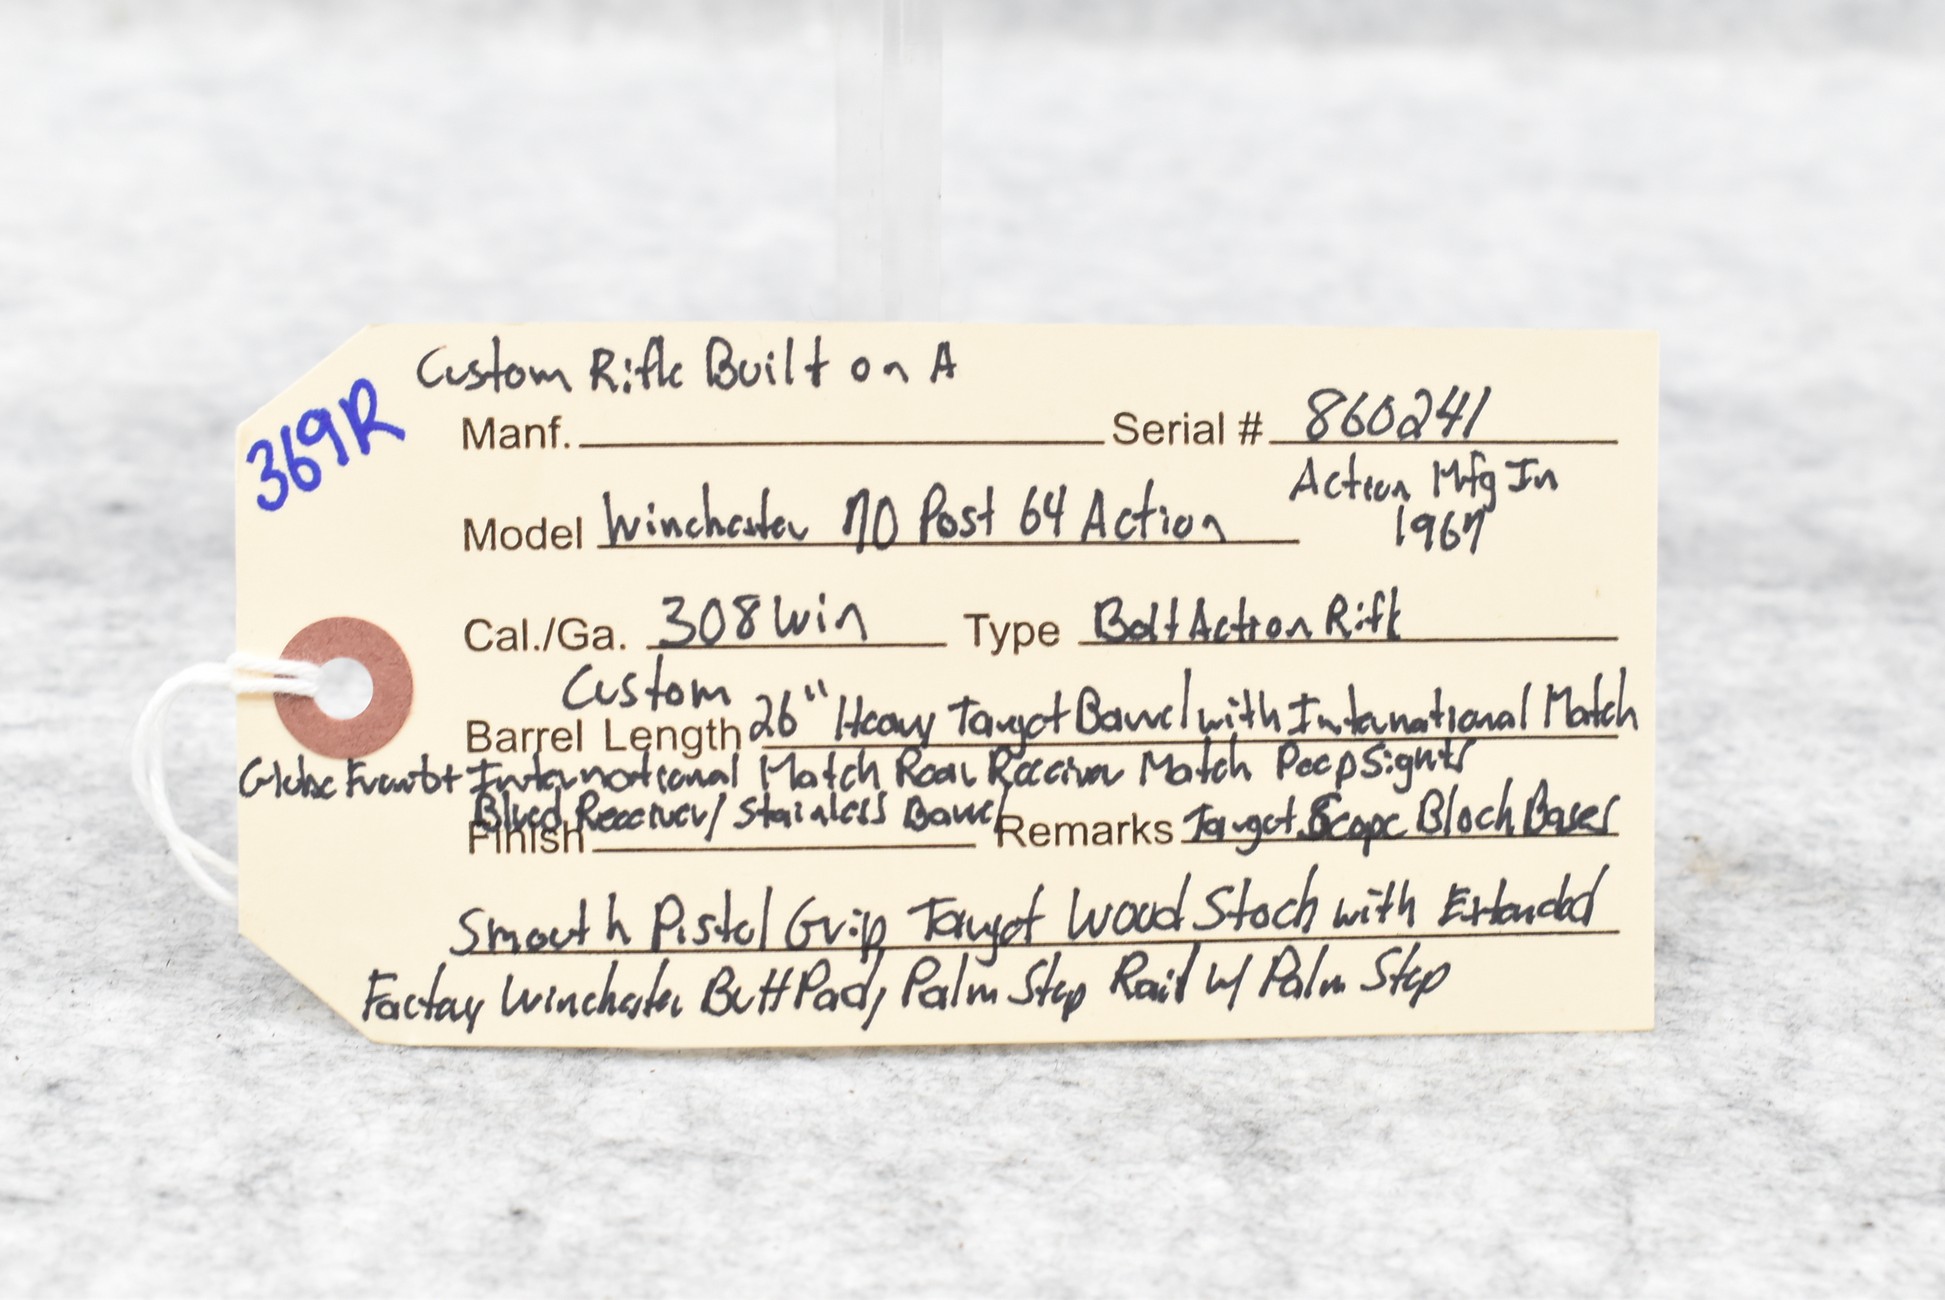 369R
Custom Rifle Built on A
Manf. Serial # 860241
Action Mfg In
Model Winchester 70 Post 64 Action
1967
Cal./Ga. 308 Win Type Bolt Action Rifle
Custom
Barrel Length 26" Heavy Target Barrel with International Match
Globe Front + International Match Rear Receiver Match Peep Sights
Blued Receiver/ Stainless Barrel
Finish Remarks Target Scope Block Bases
Smooth Pistol Grip Target Wood Stock with Extended
Factory Winchester Butt Pad, Palm Stop Rail w/ Palm Stop